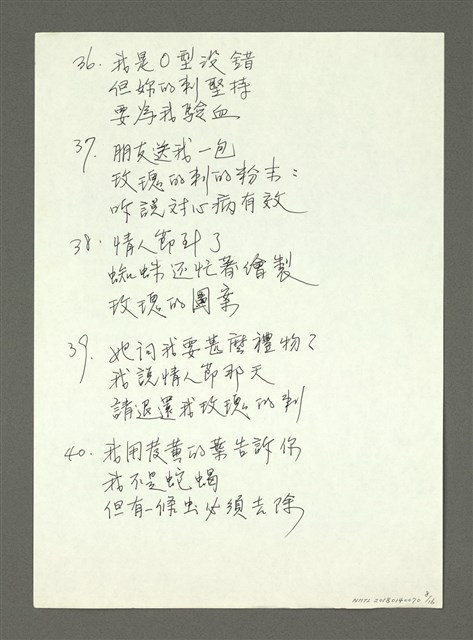 36. 我是O型没錯
但妳的刺堅持
要為我驗血
37. 朋友送我一包
玫瑰的刺的粉末：
咋說对心病有效
38. 情人節到了
蜘蛛还忙著繪製
玫瑰的圖案
39. 她问我要甚麼禮物？
我說情人節那天
請退還我玫瑰的刺
40. 我用发黄的葉告訴你
我不是蛇蝎
但有一條虫必須去除
NMTL 20180140070 8/16